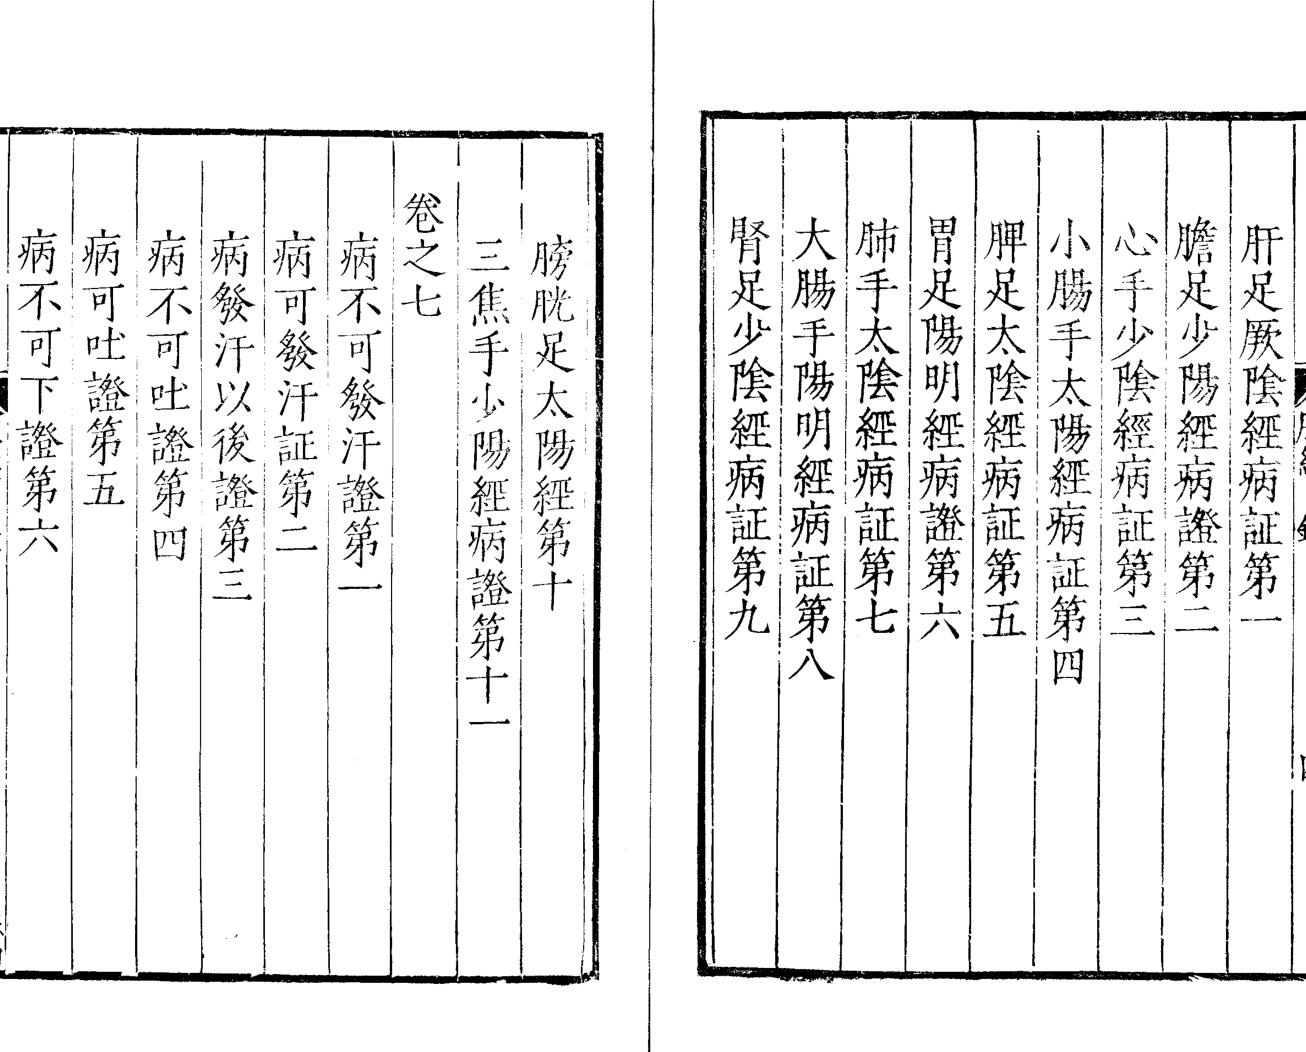 肝足厥陰經病証第一
膽足少陽經病證第二
心手少陰經病証第三
小腸手太陽經病証第四
脾足太陰經病証第五
胃足陽明經病證第六
肺手太陰經病証第七
大腸手陽明經病証第八
腎足少陰經病証第九
膀胱足太陽經第十
三焦手少陽經病證第十一
卷之七
病不可發汗證第一
病可發汗証第二
病發汗以後證第三
病不可吐證第四
病可吐證第五
病不可下證第六